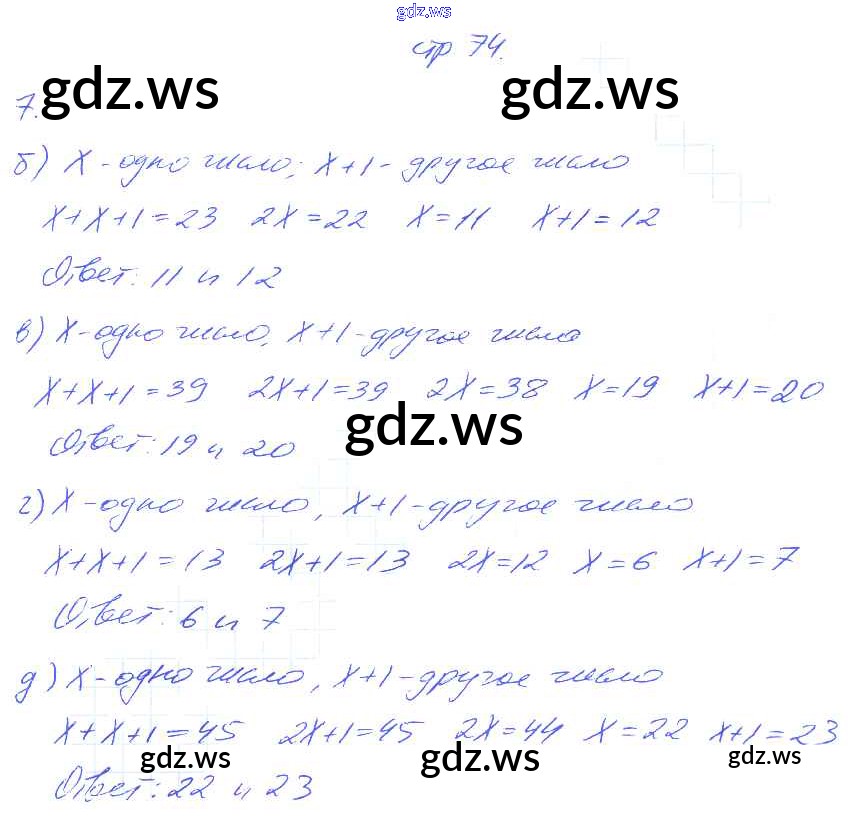 gdz.ws
стр 74.
gdz.ws gdz.ws
7.
б) x - одно число; x+1 - другое число
x+x+1=23 2x=22 x=11 x+1=12
Ответ: 11 и 12
в) x-одно число, x+1-другое число
x+x+1=39 2x+1=39 2x=38 x=19 x+1=20
gdz.ws
Ответ: 19 и 20
г) x-одно число, x+1-другое число
x+x+1=13 2x+1=13 2x=12 x=6 x+1=7
Ответ: 6 и 7
д) x-одно число, x+1-другое число
x+x+1=45 2x+1=45 2x=44 x=22 x+1=23
gdz.ws gdz.ws gdz.ws
Ответ: 22 и 23